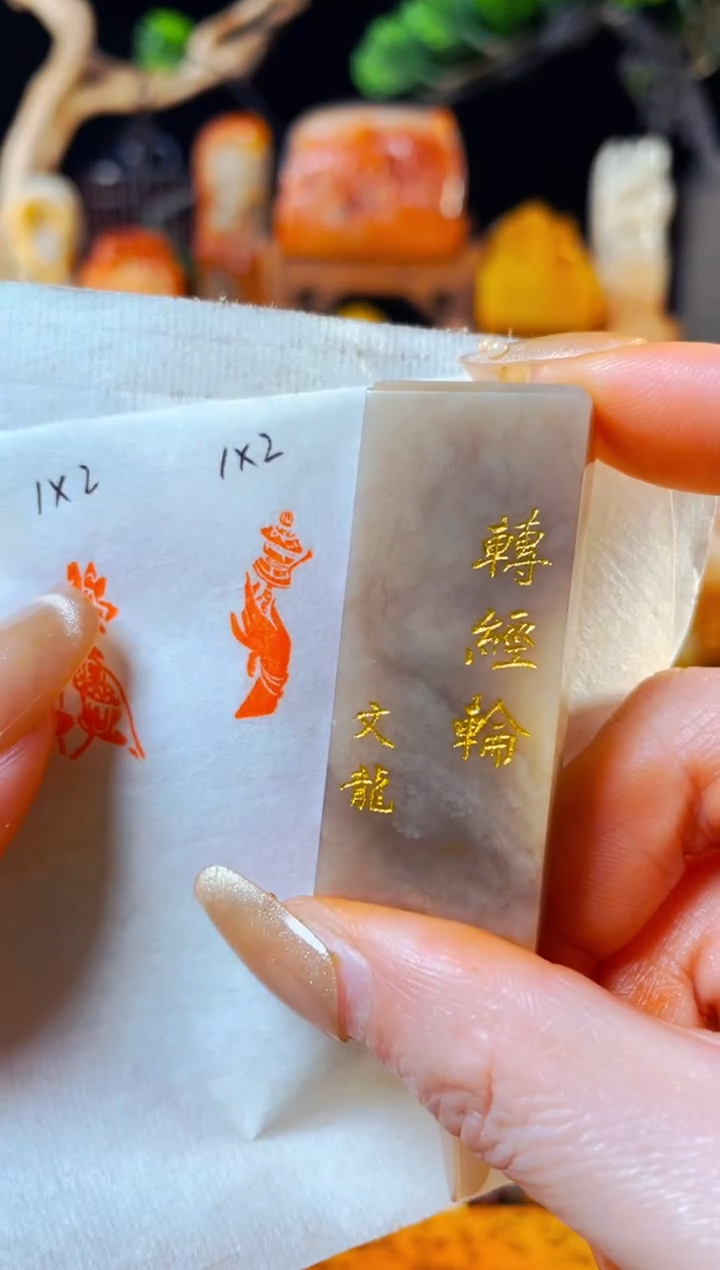 1×2
1×2
轉經輪
文龍